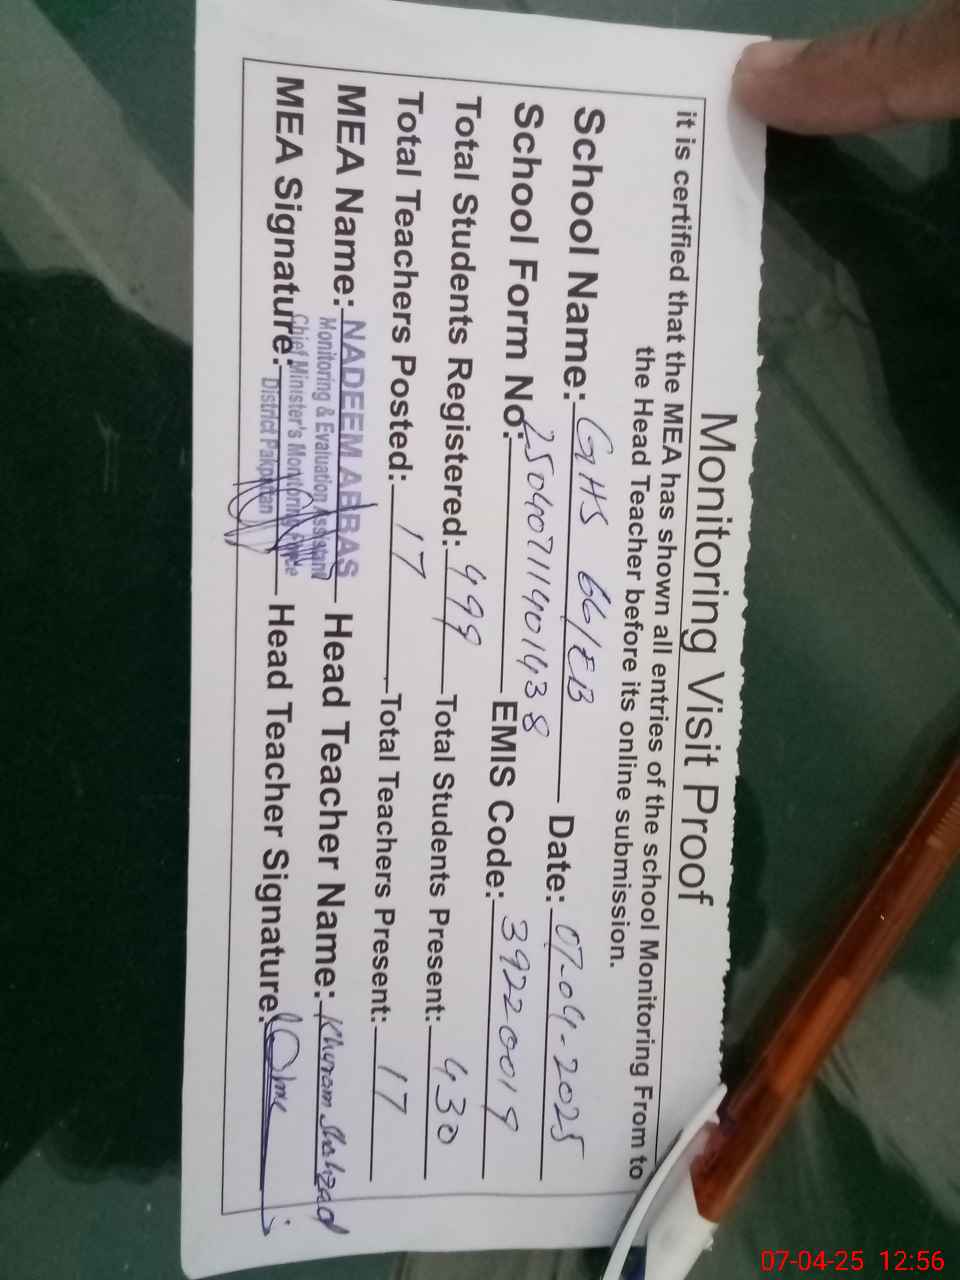 Monitoring Visit Proof
it is certified that the MEA has shown all entries of the school Monitoring From to
the Head Teacher before its online submission.
School Name: GHS 66/EB Date: 07-04-2025
School Form No: 25040711401438 EMIS Code: 39220019
Total Students Registered: 499 Total Students Present: 430
Total Teachers Posted: 17 Total Teachers Present: 17
MEA Name: NADEEM ABBAS Head Teacher Name: Khuram Shahzad
Monitoring & Evaluation Assistant
Chief Minister's Monitoring Force
District Pakpattan
MEA Signature: Head Teacher Signature:
07-04-25 12:56